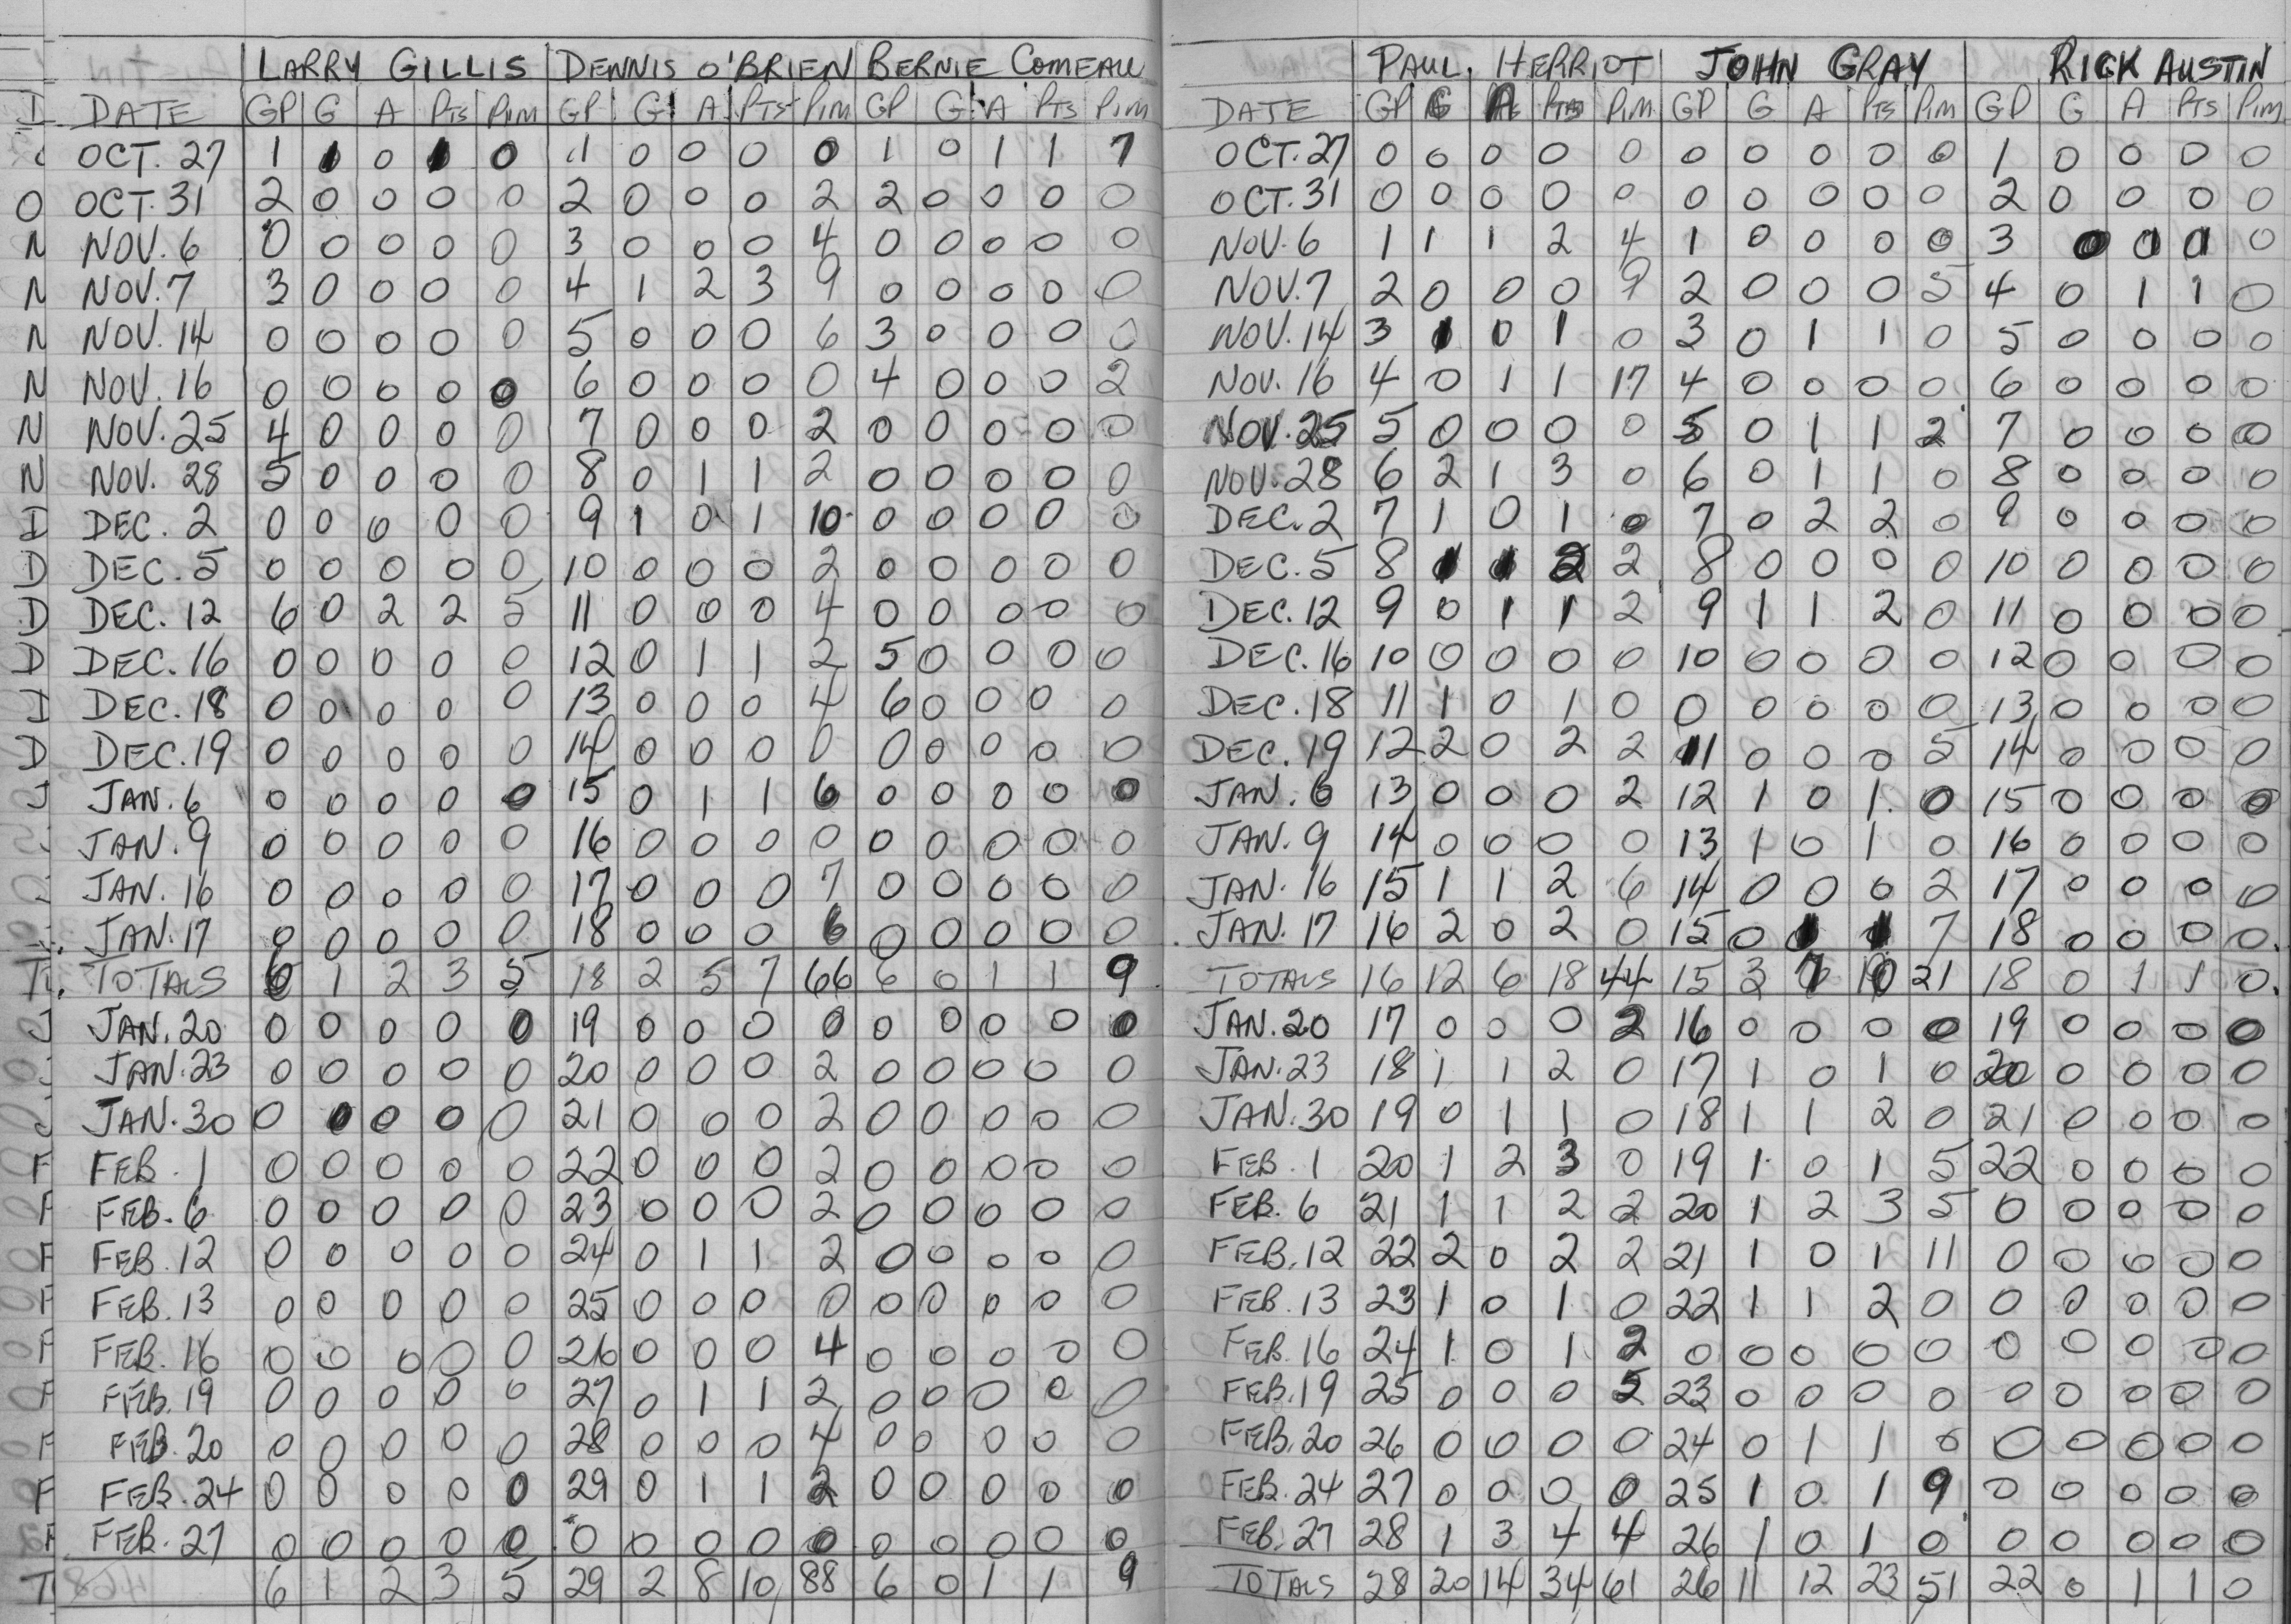 LARRY GILLIS DENNIS O'BRIEN BERNIE COMEAU
D DATE GP G A Pts Pim GP G A Pts Pim GP G A Pts Pim
OCT. 27 1 1 0 1 0 1 0 0 0 0 1 0 1 1 7
O OCT. 31 2 0 0 0 0 2 0 0 0 2 2 0 0 0 0
N NOV. 6 0 0 0 0 0 3 0 0 0 4 0 0 0 0 0
N NOV. 7 3 0 0 0 0 4 1 2 3 9 0 0 0 0 0
N NOV. 14 0 0 0 0 0 5 0 0 0 6 3 0 0 0 0
N NOV. 16 0 0 0 0 0 6 0 0 0 0 4 0 0 0 2
N NOV. 25 4 0 0 0 0 7 0 0 0 2 0 0 0 0 0
N NOV. 28 5 0 0 0 0 8 0 1 1 2 0 0 0 0 0
D DEC. 2 0 0 0 0 0 9 1 0 1 10 0 0 0 0 0
D DEC. 5 0 0 0 0 0 10 0 0 0 2 0 0 0 0 0
D DEC. 12 6 0 2 2 5 11 0 0 0 4 0 0 0 0 0
D DEC. 16 0 0 0 0 0 12 0 1 1 2 5 0 0 0 0
D DEC. 18 0 0 0 0 0 13 0 0 0 4 6 0 0 0 0
D DEC. 19 0 0 0 0 0 14 0 0 0 0 0 0 0 0 0
J JAN. 6 0 0 0 0 0 15 0 1 1 6 0 0 0 0 0
JAN. 9 0 0 0 0 0 16 0 0 0 0 0 0 0 0 0
JAN. 16 0 0 0 0 0 17 0 0 0 7 0 0 0 0 0
JAN. 17 0 0 0 0 0 18 0 0 0 6 0 0 0 0 0
TOTALS 6 1 2 3 5 18 2 5 7 66 6 0 1 1 9
J JAN. 20 0 0 0 0 0 19 0 0 0 0 0 0 0 0 0
JAN. 23 0 0 0 0 0 20 0 0 0 2 0 0 0 0 0
JAN. 30 0 0 0 0 0 21 0 0 0 2 0 0 0 0 0
F FEB. 1 0 0 0 0 0 22 0 0 0 2 0 0 0 0 0
F FEB. 6 0 0 0 0 0 23 0 0 0 2 0 0 0 0 0
F FEB. 12 0 0 0 0 0 24 0 1 1 2 0 0 0 0 0
F FEB. 13 0 0 0 0 0 25 0 0 0 0 0 0 0 0 0
F FEB. 16 0 0 0 0 0 26 0 0 0 4 0 0 0 0 0
F FEB. 19 0 0 0 0 0 27 0 1 1 2 0 0 0 0 0
F FEB. 20 0 0 0 0 0 28 0 0 0 4 0 0 0 0 0
F FEB. 24 0 0 0 0 0 29 0 1 1 2 0 0 0 0 0
F FEB. 27 0 0 0 0 0 0 0 0 0 0 0 0 0 0 0
T 6 1 2 3 5 29 2 8 10 88 6 0 1 1 9
PAUL HERRIOT JOHN GRAY RICK AUSTIN
DATE GP G A Pts Pim GP G A Pts Pim GP G A Pts Pim
OCT. 27 0 0 0 0 0 0 0 0 0 0 1 0 0 0 0
OCT. 31 0 0 0 0 0 0 0 0 0 0 2 0 0 0 0
NOV. 6 1 1 1 2 4 1 0 0 0 0 3 0 0 0
NOV. 7 2 0 0 0 9 2 0 0 0 5 4 0 1 1 0
NOV. 14 3 1 0 1 0 3 0 1 1 0 5 0 0 0 0
NOV. 16 4 0 1 1 17 4 0 0 0 0 6 0 0 0 0
NOV. 25 5 0 0 0 0 5 0 1 1 2 7 0 0 0 0
NOV. 28 6 2 1 3 0 6 0 1 1 0 8 0 0 0 0
DEC. 2 7 1 0 1 0 7 0 2 2 0 9 0 0 0 0
DEC. 5 8 1 1 2 2 8 0 0 0 0 10 0 0 0 0
DEC. 12 9 0 1 1 2 9 1 1 2 0 11 0 0 0 0
DEC. 16 10 0 0 0 0 10 0 0 0 0 12 0 0 0 0
DEC. 18 11 1 0 1 0 0 0 0 0 0 13 0 0 0 0
DEC. 19 12 2 0 2 2 11 0 0 0 5 14 0 0 0 0
JAN. 6 13 0 0 0 2 12 1 0 1 0 15 0 0 0 0
JAN. 9 14 0 0 0 0 13 1 0 1 0 16 0 0 0 0
JAN. 16 15 1 1 2 6 14 0 0 0 2 17 0 0 0 0
JAN. 17 16 2 0 2 0 15 0 1 1 7 18 0 0 0 0
TOTALS 16 12 6 18 44 15 3 7 10 21 18 0 1 1 0
JAN. 20 17 0 0 0 2 16 0 0 0 0 19 0 0 0 0
JAN. 23 18 1 1 2 0 17 1 0 1 0 20 0 0 0 0
JAN. 30 19 0 1 1 0 18 1 1 2 0 21 0 0 0 0
FEB. 1 20 1 2 3 0 19 1 0 1 5 22 0 0 0 0
FEB. 6 21 1 1 2 2 20 1 2 3 5 0 0 0 0 0
FEB. 12 22 2 0 2 2 21 1 0 1 11 0 0 0 0 0
FEB. 13 23 1 0 1 0 22 1 1 2 0 0 0 0 0 0
FEB. 16 24 1 0 1 2 0 0 0 0 0 0 0 0 0 0
FEB. 19 25 0 0 0 5 23 0 0 0 0 0 0 0 0 0
FEB. 20 26 0 0 0 0 24 0 1 1 0 0 0 0 0 0
FEB. 24 27 0 0 0 0 25 1 0 1 9 0 0 0 0 0
FEB. 27 28 1 3 4 4 26 1 0 1 0 0 0 0 0 0
TOTALS 28 20 14 34 61 26 11 12 23 51 22 0 1 1 0